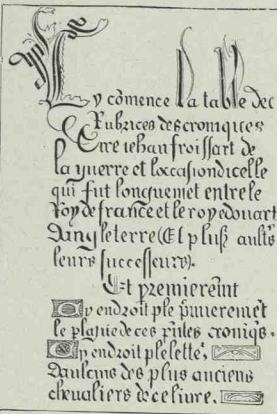 Cy cōmence la table des
Rubrices des cronicques
Sire iehan froissart de
la guerre et loccasion dicelle
qui fut longuemēt entre le
Roy de france et le roy edouart
Dangleterre (Et plusß aultṝs
leurs successeurs).
Et premieremīnt
Cy endroit ple p̄mieremēt
le plagie de ces p̄ntes croniqs.
Cy endroit ple lette,
Daulcuns des plus anciens
cheualiers de ce liure.